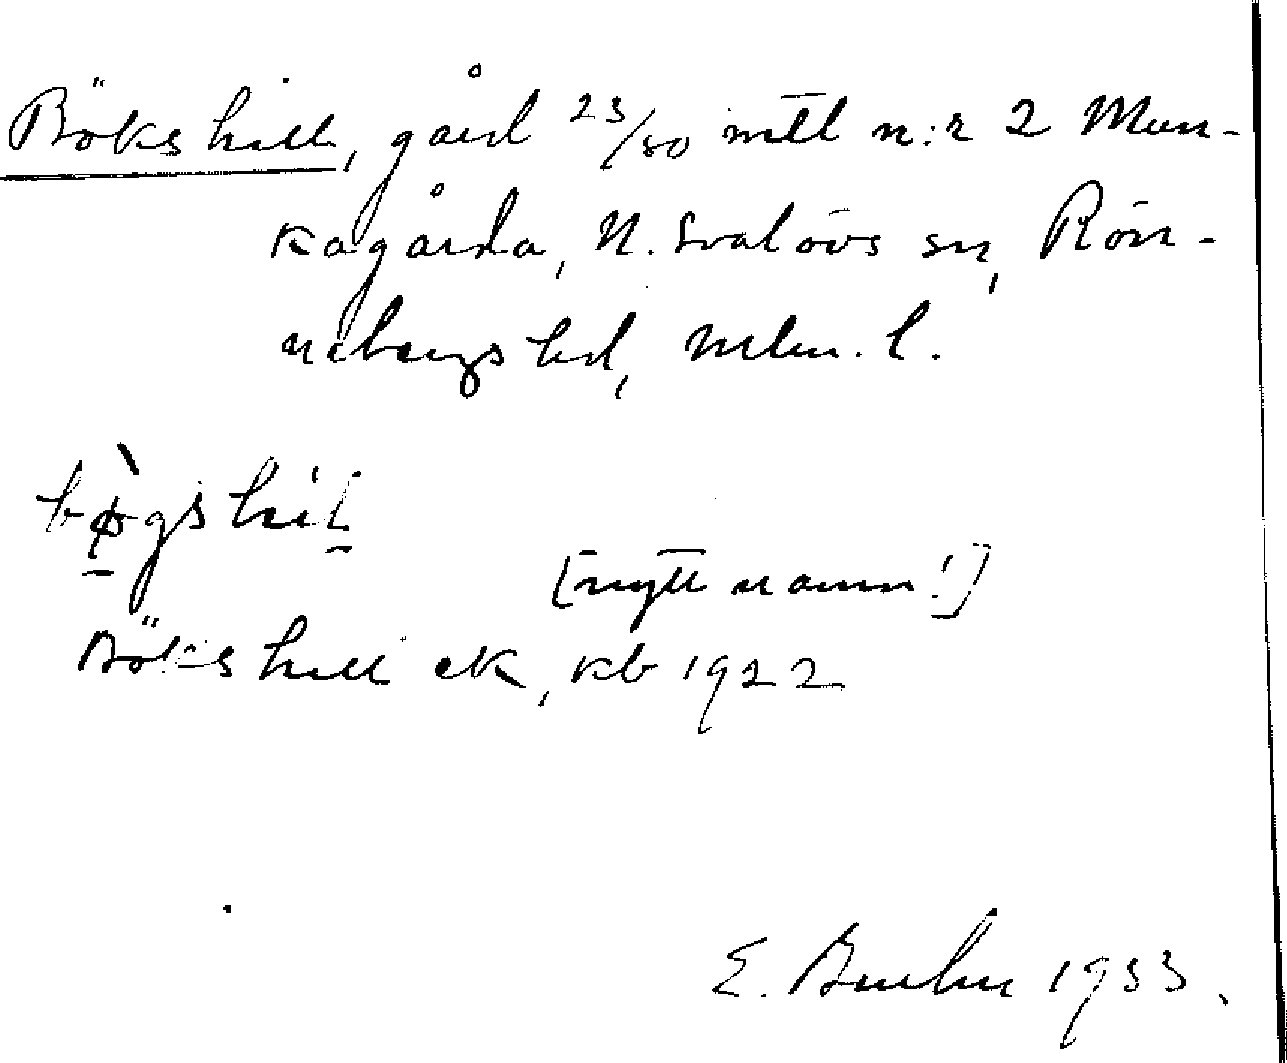 Bökshill, gård 23/80 mtl n:r 2 Mun-
kagårda, N. Svalövs sn, Rön-
nebergs hd, Mlm. l.
bø̀gshil
[nytt namn!]
Bökshill ek, kb 1922
E. 1933.